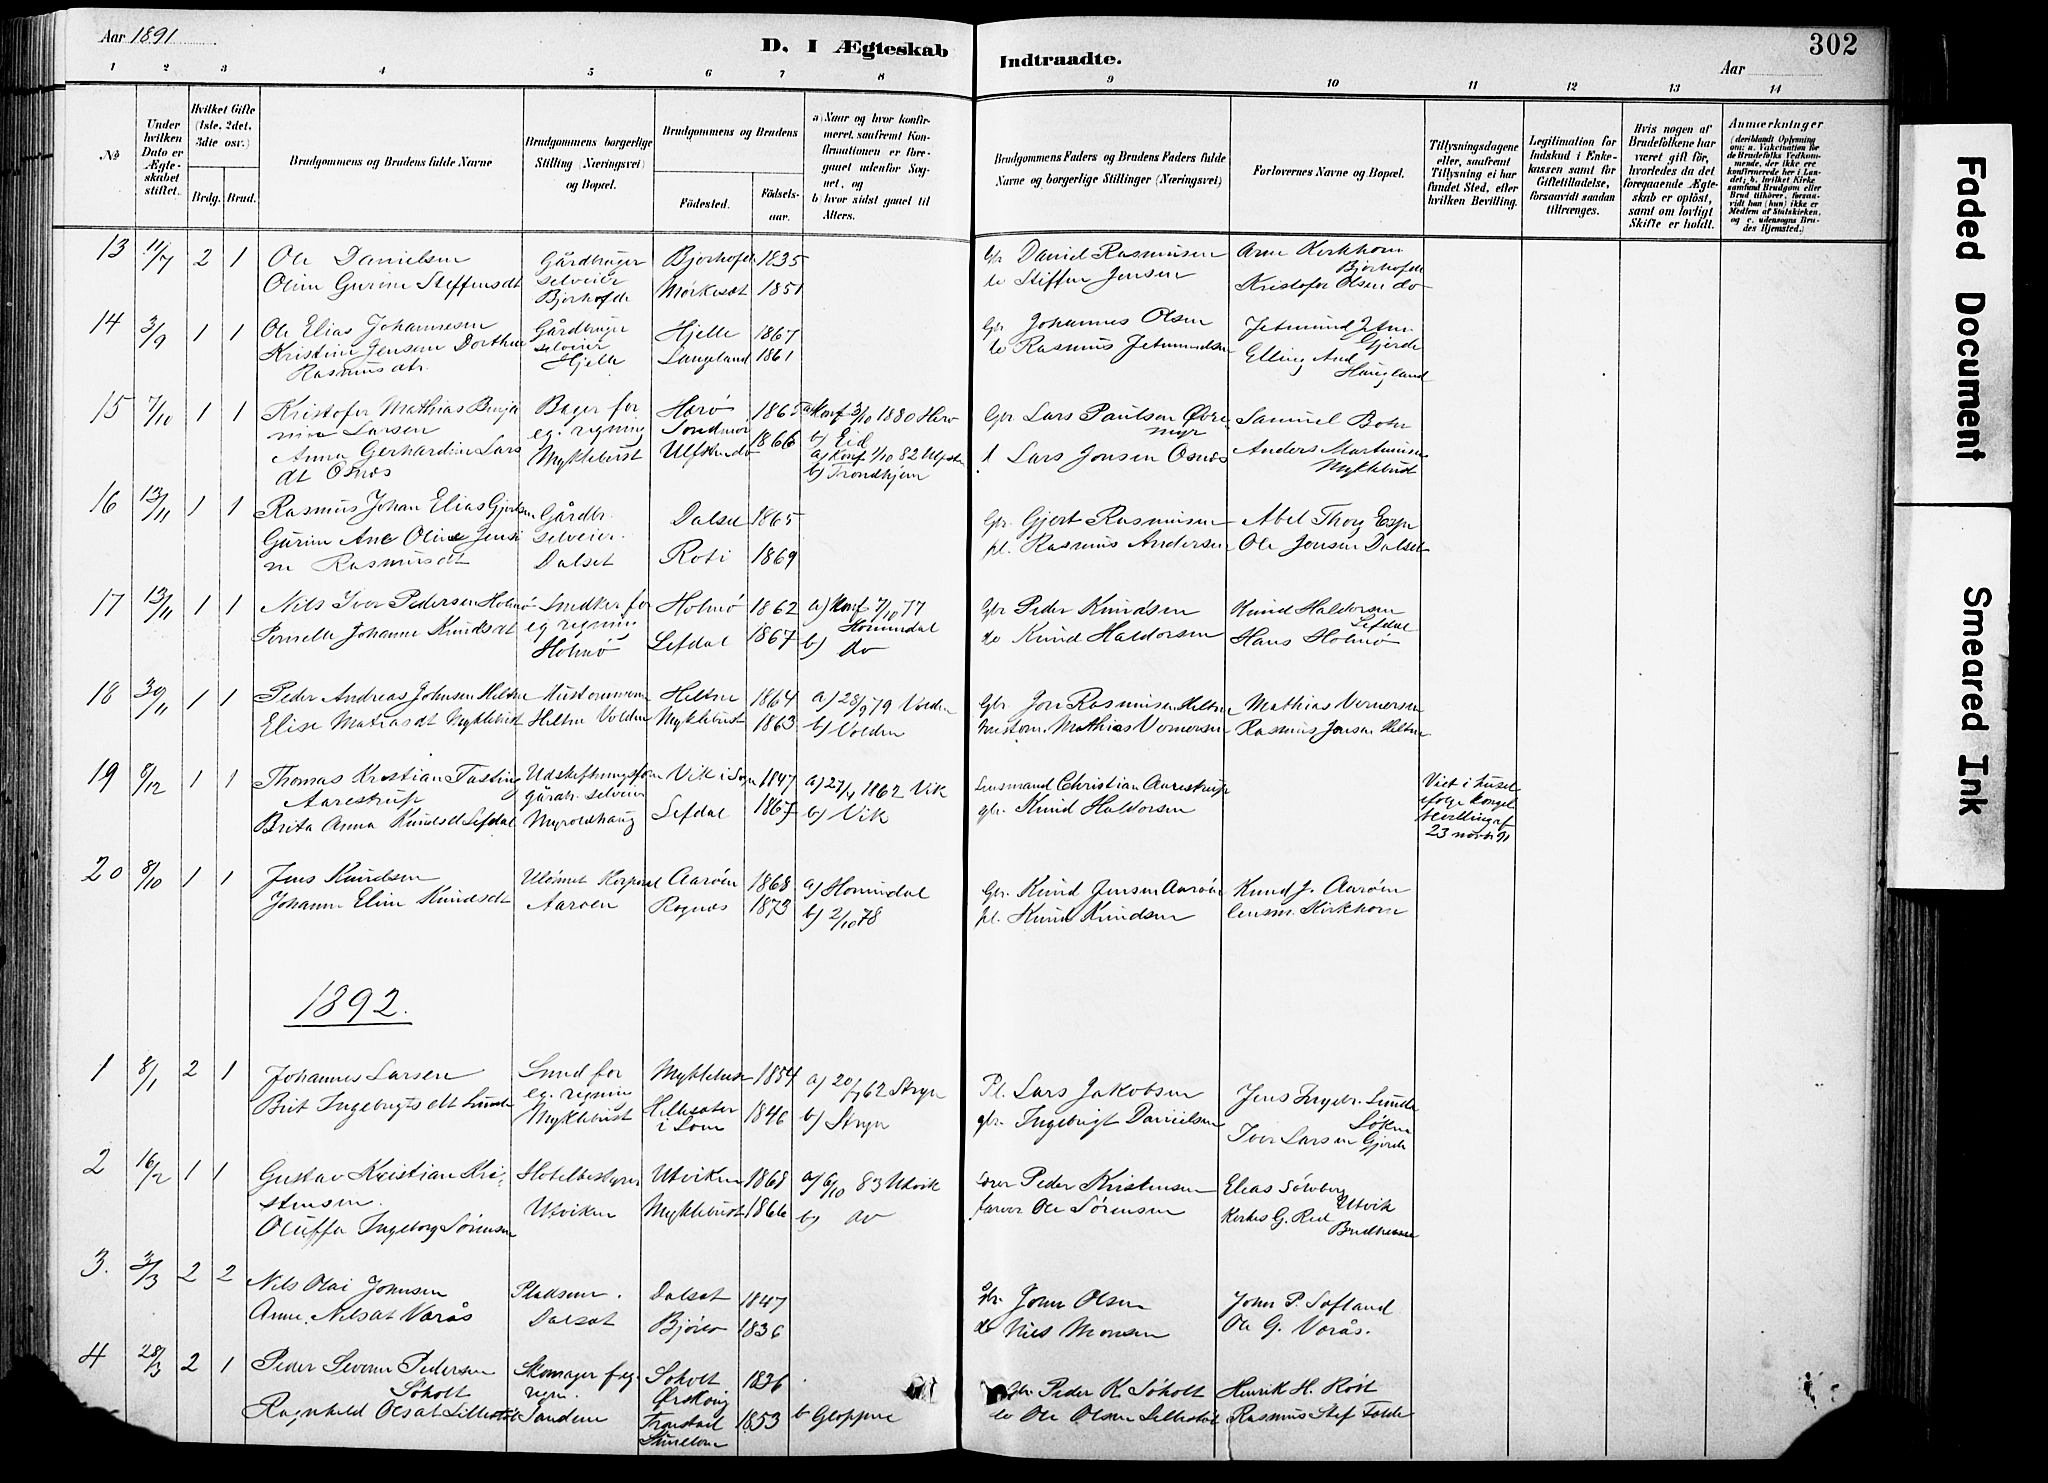 Aar 1891
D. I Ægteskab
Indtraadte.
Aar
302
1 2 3 4 5 6 7 8 9 10 11 12 13 14
No
Under hvilken Dato er Ægteskabet stiftet.
Hvilket Gifte (1ste, 2det, 3dte osv.)
Brdg. Brud.
Brudgommens og Brudens fulde Navne
Brudgommens borgerlige Stilling (Næringsvei) og Bopæl.
Brudgommens og Brudens
Fødested.
Fødselsaar.
a) Naar og hvor konfirmeret, saafremt Konfirmationen er foregaaet udenfor Sognet, og
b) hvor sidst gaaet til Alters.
Brudgommens Faders og Brudens Faders fulde Navne og borgerlige Stillinger (Næringsvei)
Forlovernes Navne og Bopæl.
Tillysningsdagene eller, saafremt Tillysning ei har fundet Sted, efter hvilken Bevilling.
Legitimation for Indskud i Enkekassen samt for Giftetilladelse, forsaavidt saadan tiltrænges.
Hvis nogen af Brudefolkene har været gift før, hvorledes da det foregaaende Ægteskab er opløst, samt om lovligt Skifte er holdt.
Anmærkninger
(deriblandt Oplysning om: a. Vakcination for de Brudefolks Vedkommende, der ikke ere konfirmerede her i Landet; b. hvilket Kirkesamfund Brudgom eller Brud tilhører, forsaavidt han (hun) ikke er Medlem af Statskirken, og c. udensogns Brudes Hjemsted.)
13 11/7 2 1 Ole Danielsen Gårdbruger Bjorhofde 1835 Gbr Daniel Rasmusen Arne Kirkhorn
Oline Gurine Steffensdt selveier Bjorhofde Mørkesæt 1851 do Steffen Jensen Bjorhofde
Kristofer Olsen do
14 3/9 1 1 Ole Elias Johannesen Gårdbruger Hjelle 1867 Gbr Johannes Olsen Jetmund Jetm. Gjerde
Kristine Jensine Dorthea selveier Langeland 1861 do Rasmus Jetmundsen Elling And Haugland
Rasmusdtr. Hjelle
15 7/10 1 1 Kristofer Mathias Benja Bager for Herø 1865 a) Konf 3/10 1880 Herø Gbr Lars Paulsen Øvre Samuel Bohr
min Larsen eg. regning Søndmør b) Eid myr
Anna Gerhardine Lars Myklebust 1866 a) Konf 1/10 82 Lars Jonsen Osnæs Anders Martinusen
dt Osnæs b) Trondhjem Myklebust
16 13/11 1 1 Rasmus Johan Elias Gjertsen Gårdbr. Dalset 1865 Gbr. Gjert Rasmusen Abel Thor Espe
Gurine Ane Oline Jensi selveier 1869 pl. Rasmus Andersen Ole Jensen Dalset
ne Rasmusdt Dalset Roti
17 13/11 1 1 Nils Iver Pedersen Holmø Snedker for Holmø 1862 a) Konf 7/10 77 Gbr Peder Knudsen Knud Haldorsen
Pernelle Johanne Knudsdt eg. regning Lefdal 1867 Hornindal do Knud Haldorsen Lefdal
Holmø b) do Hans Holmø
18 30/11 1 1 Peder Andreas Johnsen Heltne Heltne 1864 a) 28/9 79 Volden Gbr. Jon Rasmusen Heltne Mathias Vernersen
Elise Matiasdt Myklebust Heltne Volden Myklebust 1863 b) Volden Mathias Vernersen Rasmus Jonsen Heltne
19 8/12 1 1 Thomas Kristian Tasting Udskiftningsform Vik i Sogn 1847 a) 27/4 1862 Vik Lensmand Christian Aarestrup Viet i huset
Aarestrup Gårdbr. selveier b) Vik ifølge kongel.
Brita Anna Knudsdt Lefdal Myroldhaug Lefdal 1867 gbr. Knud Haldorsen bevilling af
23 novbr 91
20 8/10 1 1 Jens Knudsen Korporal Aarøen 1868 a) Hornindal Gbr. Knud Jensen Aarøen Knud J. Aarøen
Johanne Eline Knudsdt Aarøen Rognæs 1873 b) 2/10 78 pl. Knud Knudsen Lensm. Kirkhorn
1892.
1 8/1 2 1 Johannes Larsen Smed for Myklebust 1854 a) 20/7 62 Stryn Pl. Lars Jakobsen Jens Ingebr. Lunde
Brit Ingebrigtsdt Lunde eg. regning Hillesæter 1846 b) Stryn gbr. Ingebrigt Danielsen
Myklebust i Lom Iver Larsen Gjerde
2 16/2 1 1 Gustav Kristian Kri- Hotelbestyrer Utviken 1868 a) 6/10 83 Utvik Peder Kristensen Elias Solvberg
stensen Utviken Myklebust 1866 b) do Ole Sørensen Utvik
Oluffa Ingeborg Sørensen
3. 3/3 2 2 Nils Olai Johnsen Pladsm. Dalsæt 1847 Gbr John Olsen John P. Løfland
Anne Nilsdt Varås Dalsæt Bjørlo 1836 do Nils Monsen Ole G. Varås.
4 28/3 2 1 Peder Severin Pedersen Skomager f. eg. Søholt 1826 Gbr. Peder K. Søholt Henrik H. Røst
Søholt regn. Ørskoug
Ragnhild Olsdt Lillestøl Sandene 1853 b Gloppen do Ole Olsen Lillestøl Rasmus Stef Tolde
Faded Document
Smeared Ink